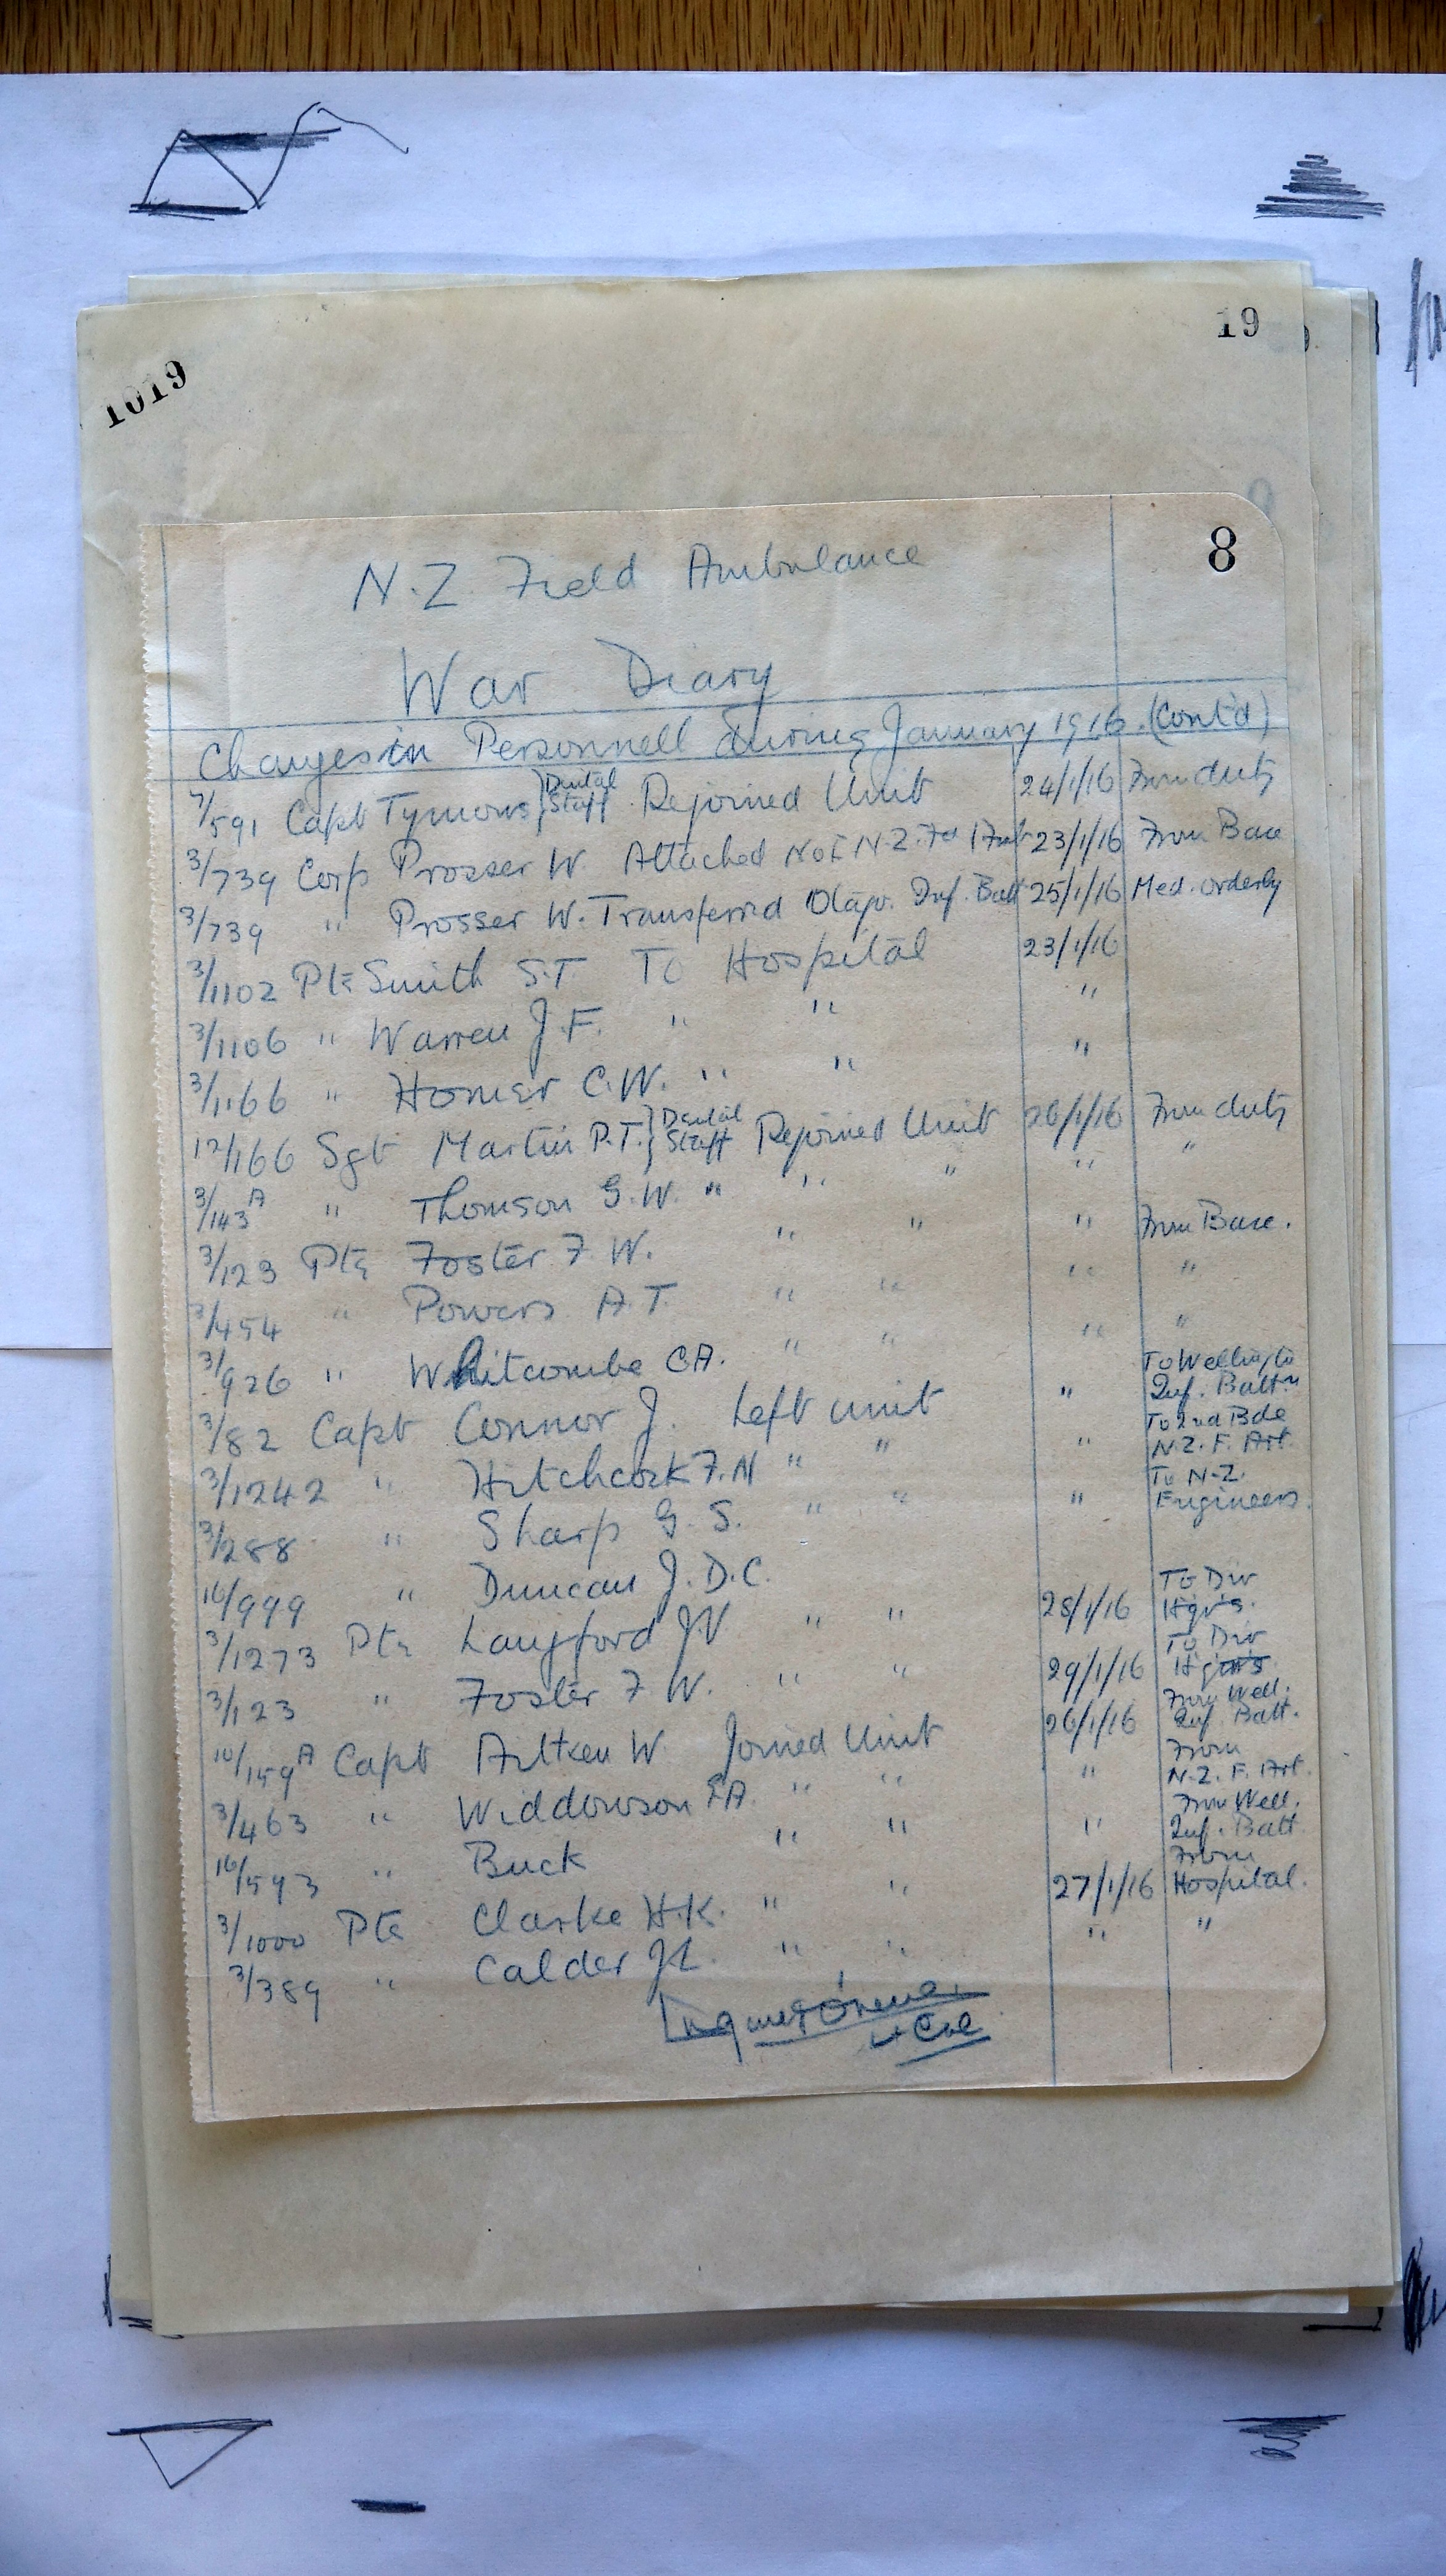 19
1019
8
N.Z. Field Ambulance
War Diary
Changes in Personnell during January 1916. (Cont'd)
7/591 Capt Tymons } Dental Staff Rejoined Unit 24/1/16 From duty
3/739 Corp Prosser W. Attached No 1 N.Z. Fd Amb 23/1/16 From Base
3/739 " Prosser W. Transferred Otago. Inf. Batt 25/1/16 Med. orderly
3/1102 Pte Smith S.T To Hospital 23/1/16
3/1106 " Warren J.F. " " "
3/1166 " Homer C.W. " " "
12/166 Sgt Martin P.T. } Dental Staff Rejoined Unit 26/1/16 From duty
3/143A " Thomson G.W. " " " " "
3/123 Pte Foster F.W. " " " From Base.
3/454 " Powers A.T. " " " "
3/926 " Whitcombe C.A. " " " "
3/82 Capt Connor J. Left unit " To Wellington Inf. Battn
3/1242 " Hitchcock F.N " " " To 2nd Bde N.Z.F. Art.
3/288 " Sharp G.S. " " " To N.Z. Engineers.
10/999 " Duncan J.D.C.
3/1273 Pte Langford JW " " 28/1/16 To Div Hqrs.
3/123 " Foster F W. " " 29/1/16 To Div Hqrs
10/159A Capt Aitken W. Joined Unit 26/1/16 From Well. Inf. Batt.
3/463 " Widdowson EA. " " " From N.Z.F. Art.
16/593 " Buck " " " From Well. Inf. Batt
3/1000 Pte Clarke H.K. " " 27/1/16 From Hospital.
3/389 " Calder JL. " " " "
Lt Col